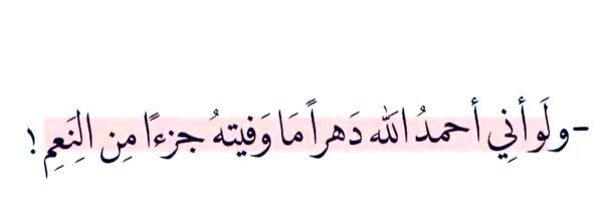 -ولَو أنِي أحمدُ الله دَهراً مَا وَفيتهُ جزءًا مِن الِنَعِم!